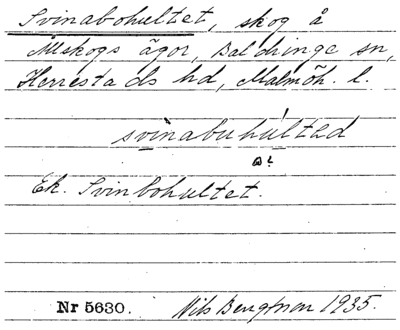 Svinabohultet, skog å
Allskogs ägor, Baldringe sn,
Herrestads hd, Malmöh. l.
svinabuhúltəd
Ek. Svinbohultet.
Nr 5630. Nils Bengtson 1935.